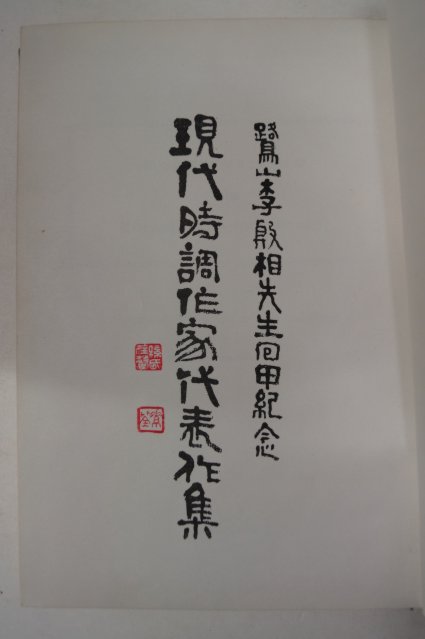 鷺山李殷相先生回甲紀念
現代時調作家代表作集